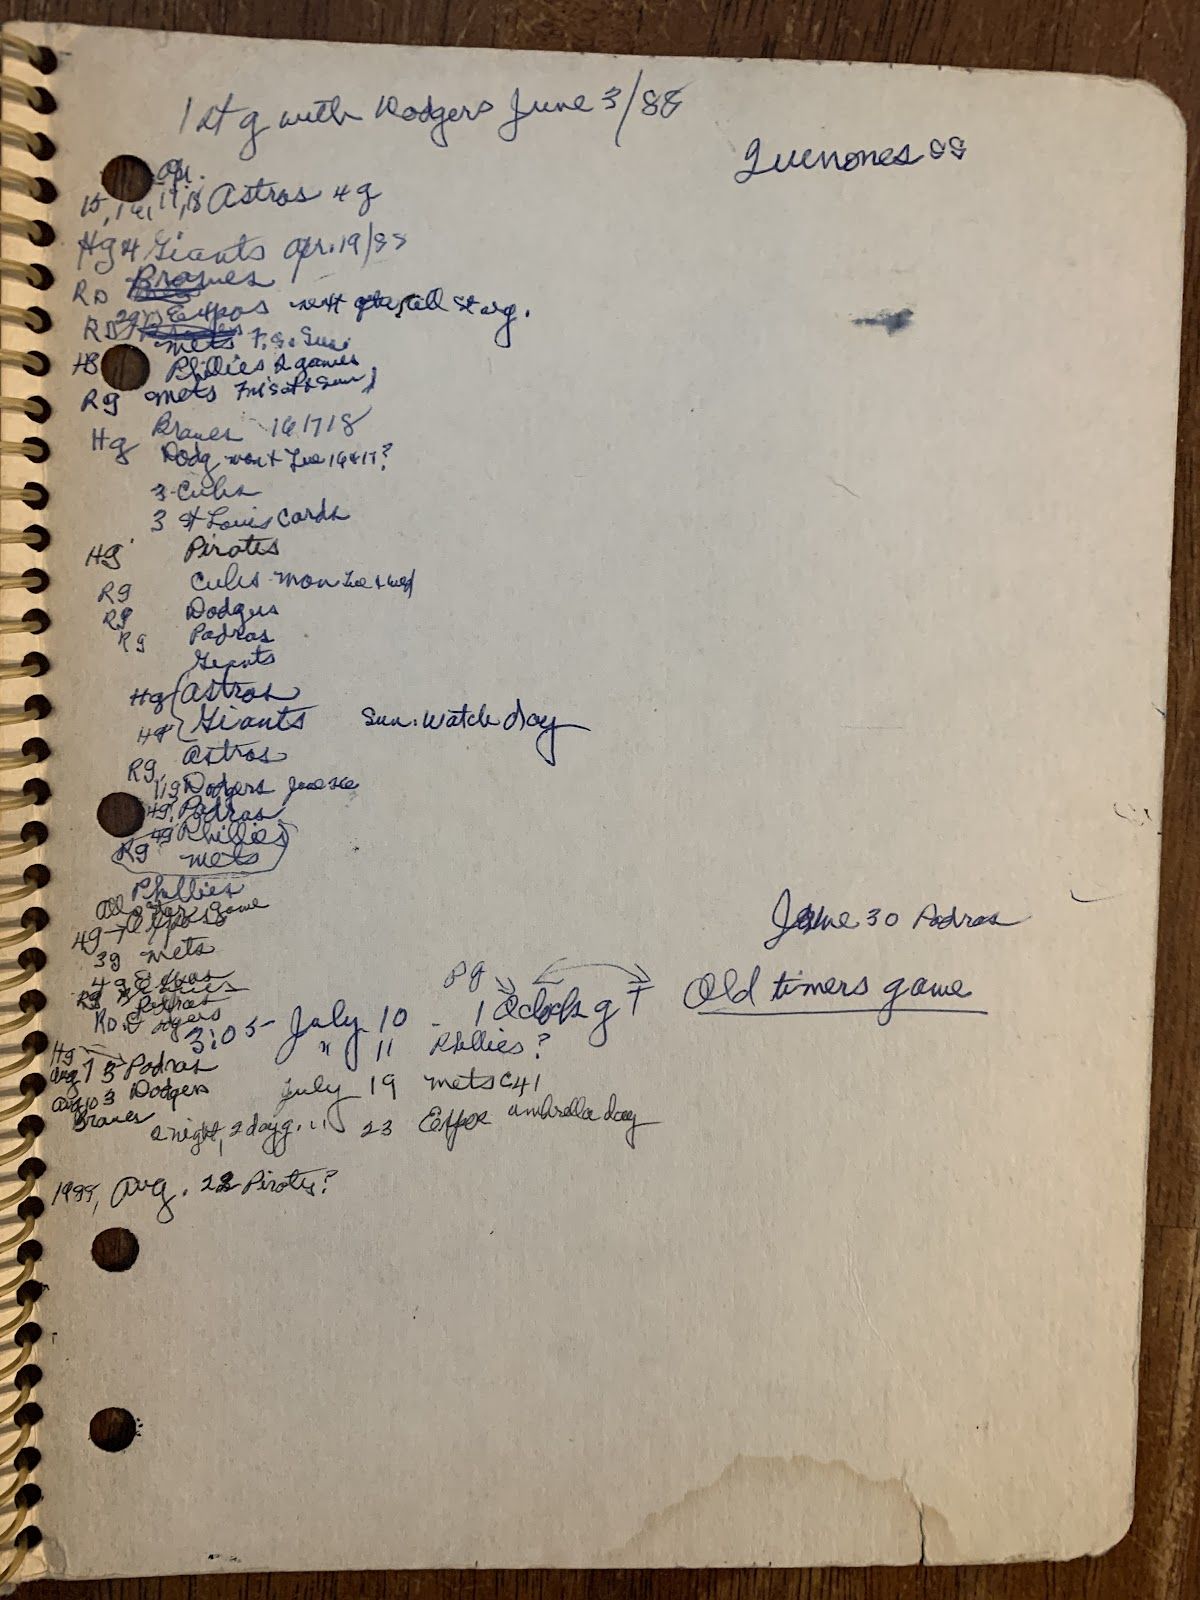 1st g with Dodgers June 3/88
Quenones SS
Apr.
15, 16, 17, 18 Astros 4 g
Hg 4 Giants Apr. 19/88
RD Braves
RD Expos next after all st. g.
Mets F. S. Sun.
HS Phillies 2 games
Rg Mets Fri Sat & Sun
Hg Braves 16 17 18
Dodg Mon & Tue 16 & 17?
3 - Cubs
3 St Louis Cards
Hg Pirates
Rg Cubs - Mon Tue & Wed
Rg Dodgers
Rg Padras
Giants
Hg Astros
Hg Giants Sun. Watch day
Rg. Astros
Dodgers
4g. Padras
4g Phillies
Rg Mets
Phillies
All Star Game
4g - Expos
3g Mets
4g Expos
Rg
Padras
RD. Dodgers
June 30 Padras
Pg
3:05 - July 10 - 1 Oclock g T Old timers game
" 11 Phillies?
Hg
Aug 7 3 Padras
July 19 Mets C41
Aug 10 3 Dodgers
Braves 2 night, 2 day g. 23 Expos umbrella day
1988, Aug. 22 Pirates?